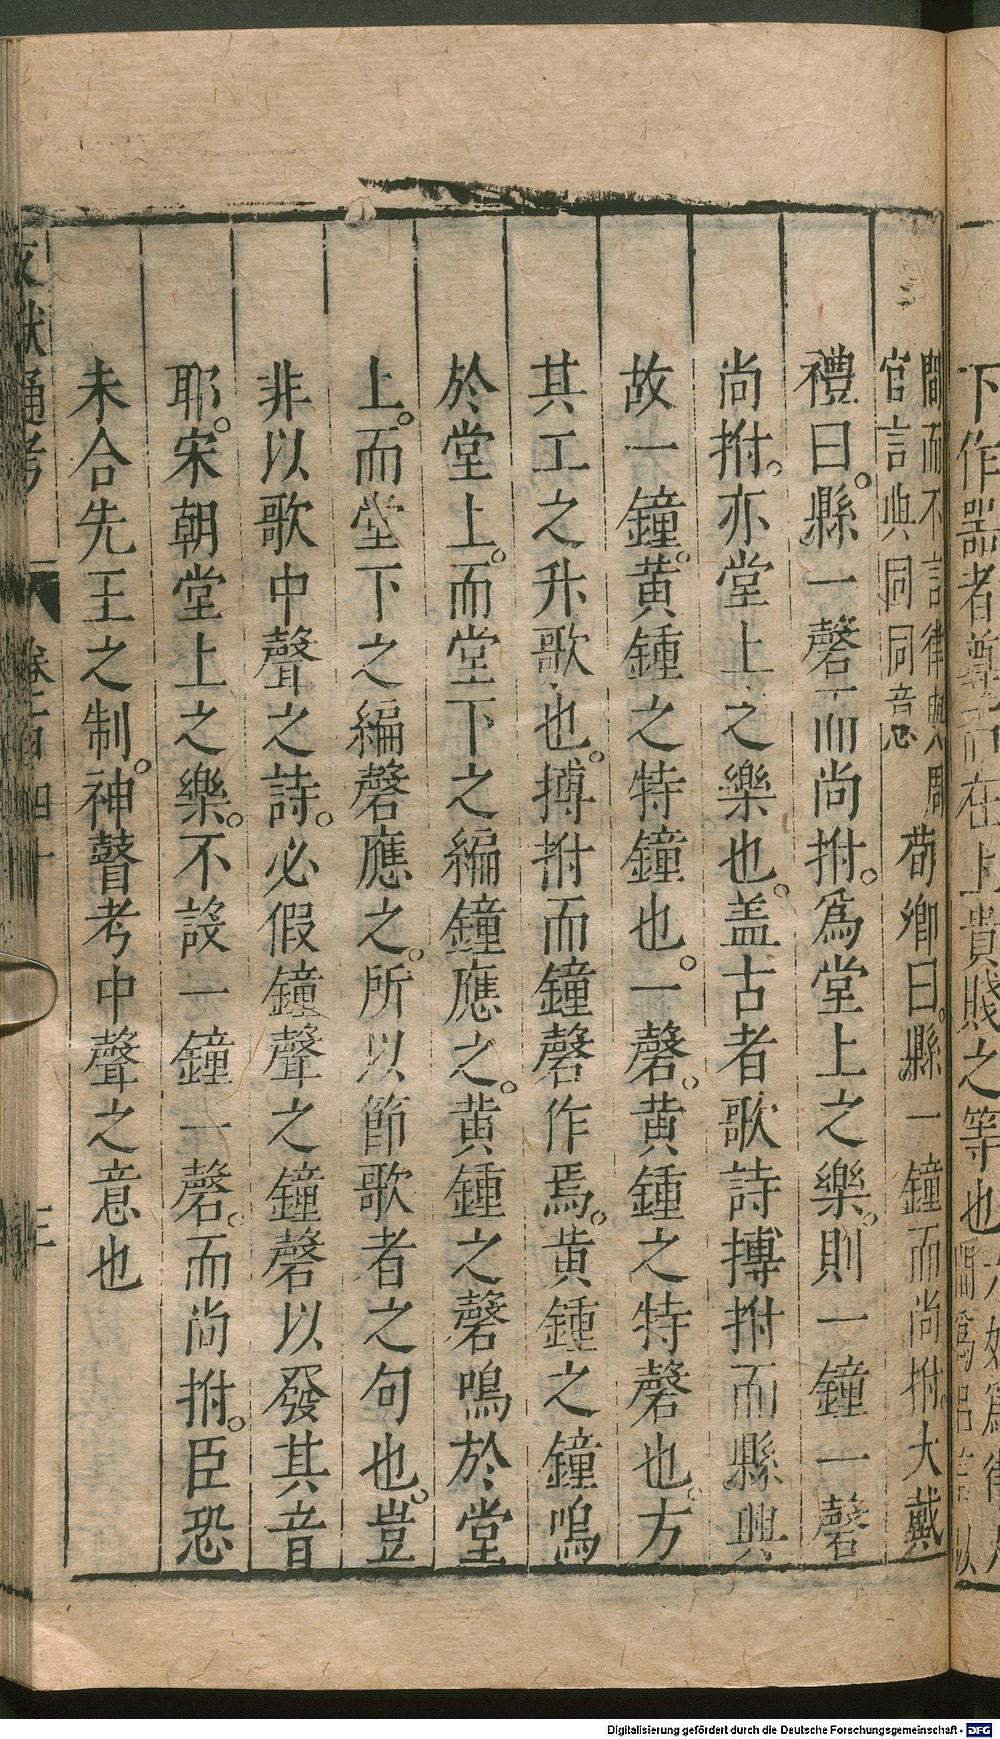 下作器者尊而在上貴賤之等也
間而不言律與周
官言典同同音 荀卿曰縣一鐘而尚拊大戴
禮曰縣一磬而尚拊爲堂上之樂則一鐘一磬
尚拊亦堂上之樂也盖古者歌詩搏拊而縣興
故一鐘黄鍾之特鐘也一磬黄鍾之特磬也方
其工之升歌也搏拊而鐘磬作焉黄鍾之鐘鳴
於堂上而堂下之編鐘應之黄鍾之磬鳴於堂
上而堂下之編磬應之所以節歌者之句也豈
非以歌中聲之詩必假鐘聲之鐘磬以發其音
耶宋朝堂上之樂不設一鐘一磬而尚拊臣恐
未合先王之制神瞽考中聲之意也
文獻通考 卷百四十 三
Digitalisierung gefördert durch die Deutsche Forschungsgemeinschaft - DFG